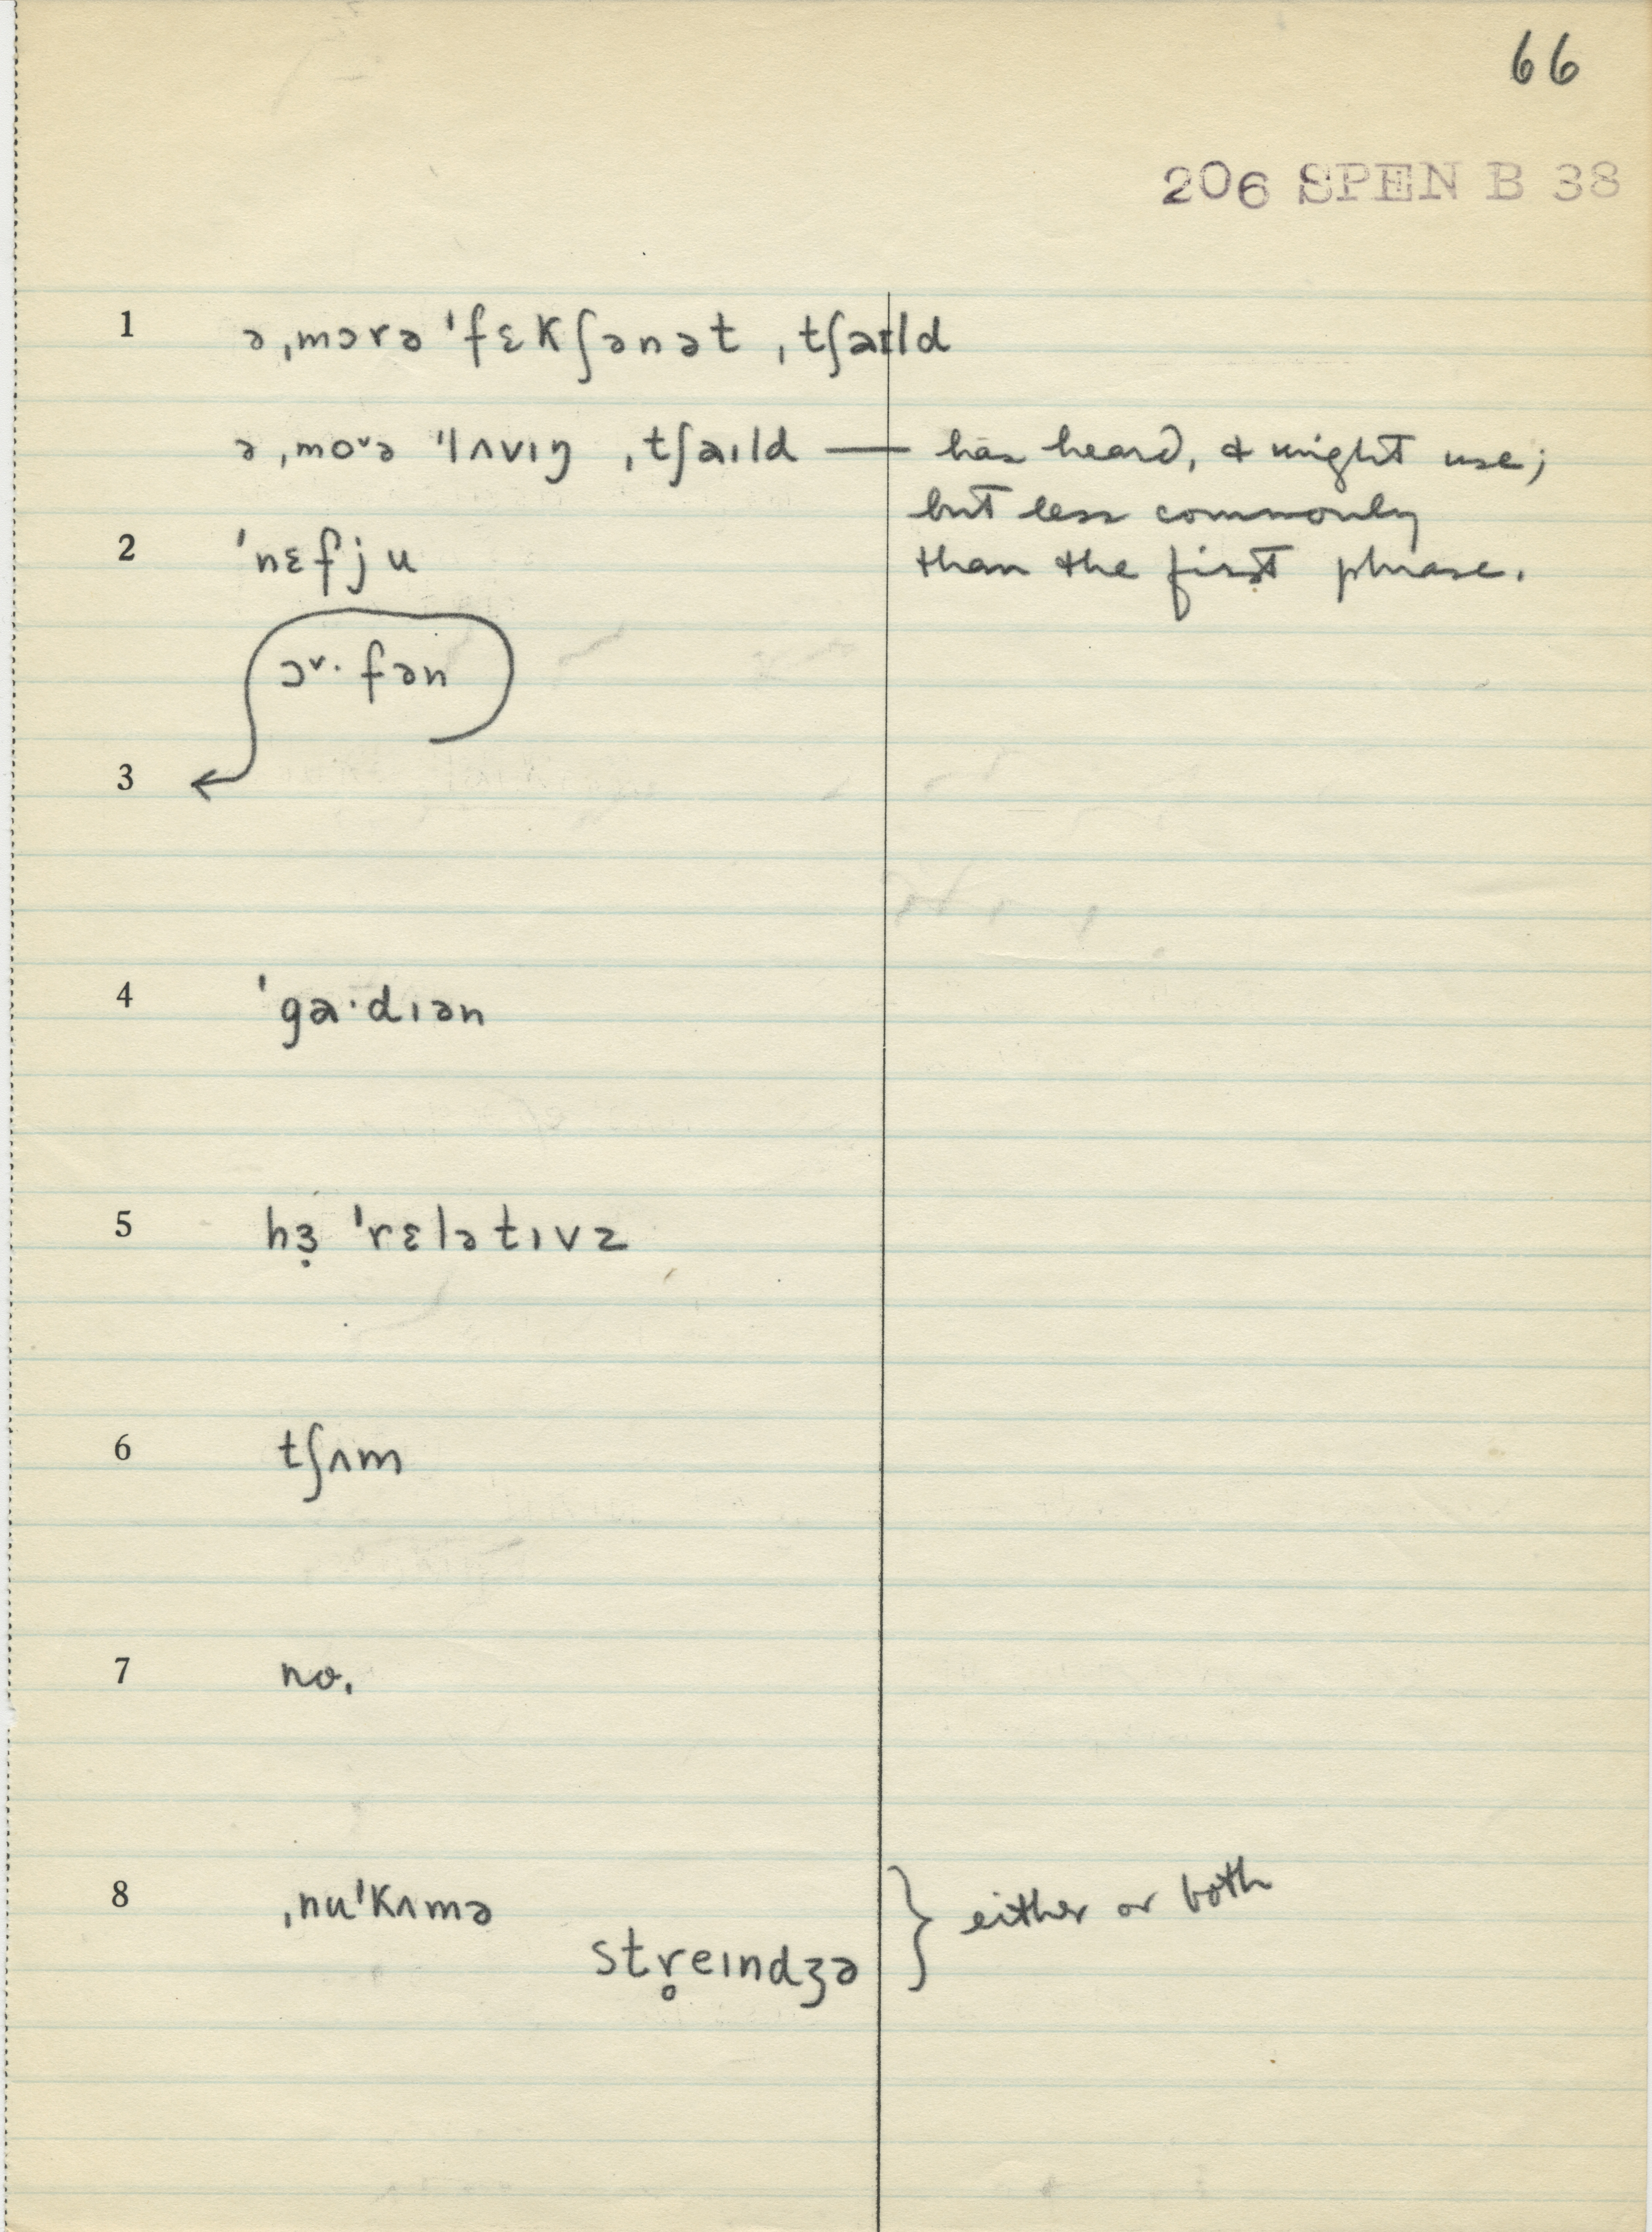 66
206 SPEN B 38
1 ə ˌmɔrə ˈfɛkʃənət ˌtʃaɪld
ə ˌmoᵛə ˈlʌvɪŋ ˌtʃaɪld — has heard, & might use;
but less commonly
2 ˈnɛfju than the first phrase.
ɔᵛ· fən
3
4 ˈga·dɪən
5 hɜ̣ ˈrɛlətɪvz
6 tʃʌm
7 no.
8 ˌnuˈkʌmə } either or both
str̥eɪndʒə